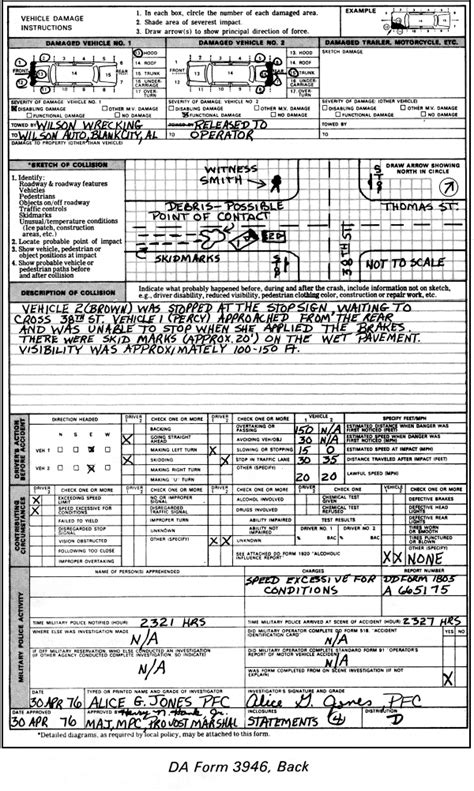 VEHICLE DAMAGE INSTRUCTIONS
1. In each box, circle the number of each damaged area.
2. Shade area of severest impact.
3. Draw arrow(s) to show principal direction of force.
EXAMPLE
DAMAGED VEHICLE NO. 1
DAMAGED VEHICLE NO. 2
DAMAGED TRAILER, MOTORCYCLE, ETC.
13 HOOD
14 ROOF
15 TRUNK
16 UNDER-CARRIAGE
17 OVER TURN
FRONT
13 HOOD
14 ROOF
15 TRUNK
16 UNDER-CARRIAGE
17 OVER TURN
SKETCH DAMAGE
SEVERITY OF DAMAGE: VEHICLE NO. 1
DISABLING DAMAGE
OTHER M.V. DAMAGE
FUNCTIONAL DAMAGE
NO DAMAGE
SEVERITY OF DAMAGE: VEHICLE NO. 2
DISABLING DAMAGE
OTHER M.V. DAMAGE
FUNCTIONAL DAMAGE
NO DAMAGE
SEVERITY OF DAMAGE: (OTHER VEHICLE)
DISABLING DAMAGE
OTHER M.V. DAMAGE
FUNCTIONAL DAMAGE
NO DAMAGE
TOWED BY WILSON WRECKING
TO WILSON AUTO, BLANK CITY, AL
TOWED BY RELEASED TO
TO OPERATOR
TOWED BY
TO
DAMAGE TO PROPERTY (OTHER THAN VEHICLE)
*SKETCH OF COLLISION
1. Identify:
Roadway & roadway features
Vehicles
Pedestrians
Objects on/off roadway
Traffic controls
Skidmarks
Unusual/temperature conditions
(Ice patch, construction
areas, etc.)
2. Locate probable point of impact
3. Show vehicle, pedestrian or
object positions at impact
4. Show probable vehicle or
pedestrian paths before
and after collision
WITNESS
SMITH
DEBRIS-POSSIBLE
POINT OF CONTACT
SKIDMARKS
STOP
38TH ST
DRAW ARROW SHOWING
NORTH IN CIRCLE
THOMAS ST.
NOT TO SCALE
DESCRIPTION OF COLLISION
Indicate what probably happened before, during and after the crash, include information not on sketch,
e.g., driver disability, reduced visibility, pedestrian clothing color, construction or repair work, etc.
VEHICLE 2 (BROWN) WAS STOPPED AT THE STOP SIGN, WAITING TO
CROSS 38TH ST. VEHICLE 1 (PERCY) APPROACHED FROM THE REAR
AND WAS UNABLE TO STOP WHEN SHE APPLIED THE BRAKES.
THERE WERE SKID MARKS (APPROX. 20') ON THE WET PAVEMENT.
VISIBILITY WAS APPROXIMATELY 100-150 FT.
DRIVER'S ACTION BEFORE ACCIDENT
DIRECTION HEADED
N S E W
VEH 1 X
VEH 2 X
DRIVER
CHECK ONE OR MORE
BACKING
X GOING STRAIGHT AHEAD
MAKING LEFT TURN
X SKIDDING
MAKING RIGHT TURN
MAKING 'U' TURN
DRIVER
CHECK ONE OR MORE
OVERTAKING OR PASSING
AVOIDING VEH/OBJ
X SLOWING OR STOPPING
X STOP IN TRAFFIC LANE
OTHER (SPECIFY)
VEHICLE
1 2
SPECIFY FEET/MPH
150 N/A ESTIMATED DISTANCE WHEN DANGER WAS FIRST NOTICED (FEET)
30 N/A ESTIMATED SPEED WHEN DANGER WAS FIRST NOTICED (MPH)
15 0 ESTIMATED SPEED AT IMPACT (MPH)
30 35 DISTANCE TRAVELED AFTER IMPACT (FEET)
20 20 LAWFUL SPEED (MPH)
CONTRIBUTING CIRCUMSTANCES
DRIVER
CHECK ONE OR MORE
X EXCEEDING SPEED LIMIT
X SPEED EXCESSIVE FOR CONDITIONS
FAILED TO YIELD
DISREGARDED STOP SIGNAL
VISION OBSTRUCTED
FOLLOWING TOO CLOSE
IMPROPER OVERTAKING
CHECK ONE OR MORE
NO OR IMPROPER SIGNAL
DISREGARDED TRAFFIC SIGNAL
IMPROPER TURN
UNKNOWN
OTHER (SPECIFY)
DRIVER
CHECK ONE OR MORE
ALCOHOL INVOLVED
DRUGS INVOLVED
ABILITY IMPAIRED
ABILITY NOT IMPAIRED
X X UNKNOWN
CHECK ONE OR MORE
CHEMICAL TEST GIVEN
CHEMICAL TEST REFUSED
TEST RESULTS
DRIVER NO. 1 DRIVER NO. 2
% BAC % BAC
SEE ATTACHED DD FORM 1920 "ALCOHOLIC INFLUENCE REPORT"
VEHICLE
CHECK ONE OR MORE
DEFECTIVE BRAKES
DEFECTIVE HEAD LIGHTS
DEFECTIVE REAR LIGHTS
TIRES WORN OR SMOOTH
TIRES PUNCTURED OR BLOWN
OTHER (SPECIFY)
XX NONE
MILITARY POLICE ACTIVITY
NAME OF PERSON(S) APPREHENDED
CHARGES
REPORT NUMBER
SPEED EXCESSIVE FOR
CONDITIONS
DD FORM 1805
A 665175
TIME MILITARY POLICE NOTIFIED (HOUR) 2321 HRS
TIME MILITARY POLICE ARRIVED AT SCENE OF ACCIDENT (HOUR) 2327 HRS
WHERE ELSE WAS INVESTIGATION MADE
N/A
DID MILITARY OPERATOR COMPLETE DD FORM 518, "ACCIDENT IDENTIFICATION CARD"
N/A
YES NO
IF OFF MILITARY RESERVATION, WHO ELSE CONDUCTED AN INVESTIGATION
N/A
DID MILITARY OPERATOR COMPLETE STANDARD FORM 91 "OPERATOR'S REPORT OF MOTOR VEHICLE ACCIDENT"
N/A
WAS FORM COMPLETED FROM ON SCENE INVESTIGATION (IF NOT EXPLAIN)
X
DATE
30 APR 76
TYPED OR PRINTED NAME AND GRADE OF INVESTIGATOR
ALICE G. JONES PFC
INVESTIGATOR'S SIGNATURE AND GRADE
Alice G. Jones PFC
DATE APPROVED
30 APR 76
APPROVED BY
MAJ, MPC, PROVOST MARSHAL
INCLOSURES
STATEMENTS (4)
DISTRIBUTION
D
*Detailed diagrams, as required by local policy, may be attached to this form.
DA Form 3946, Back